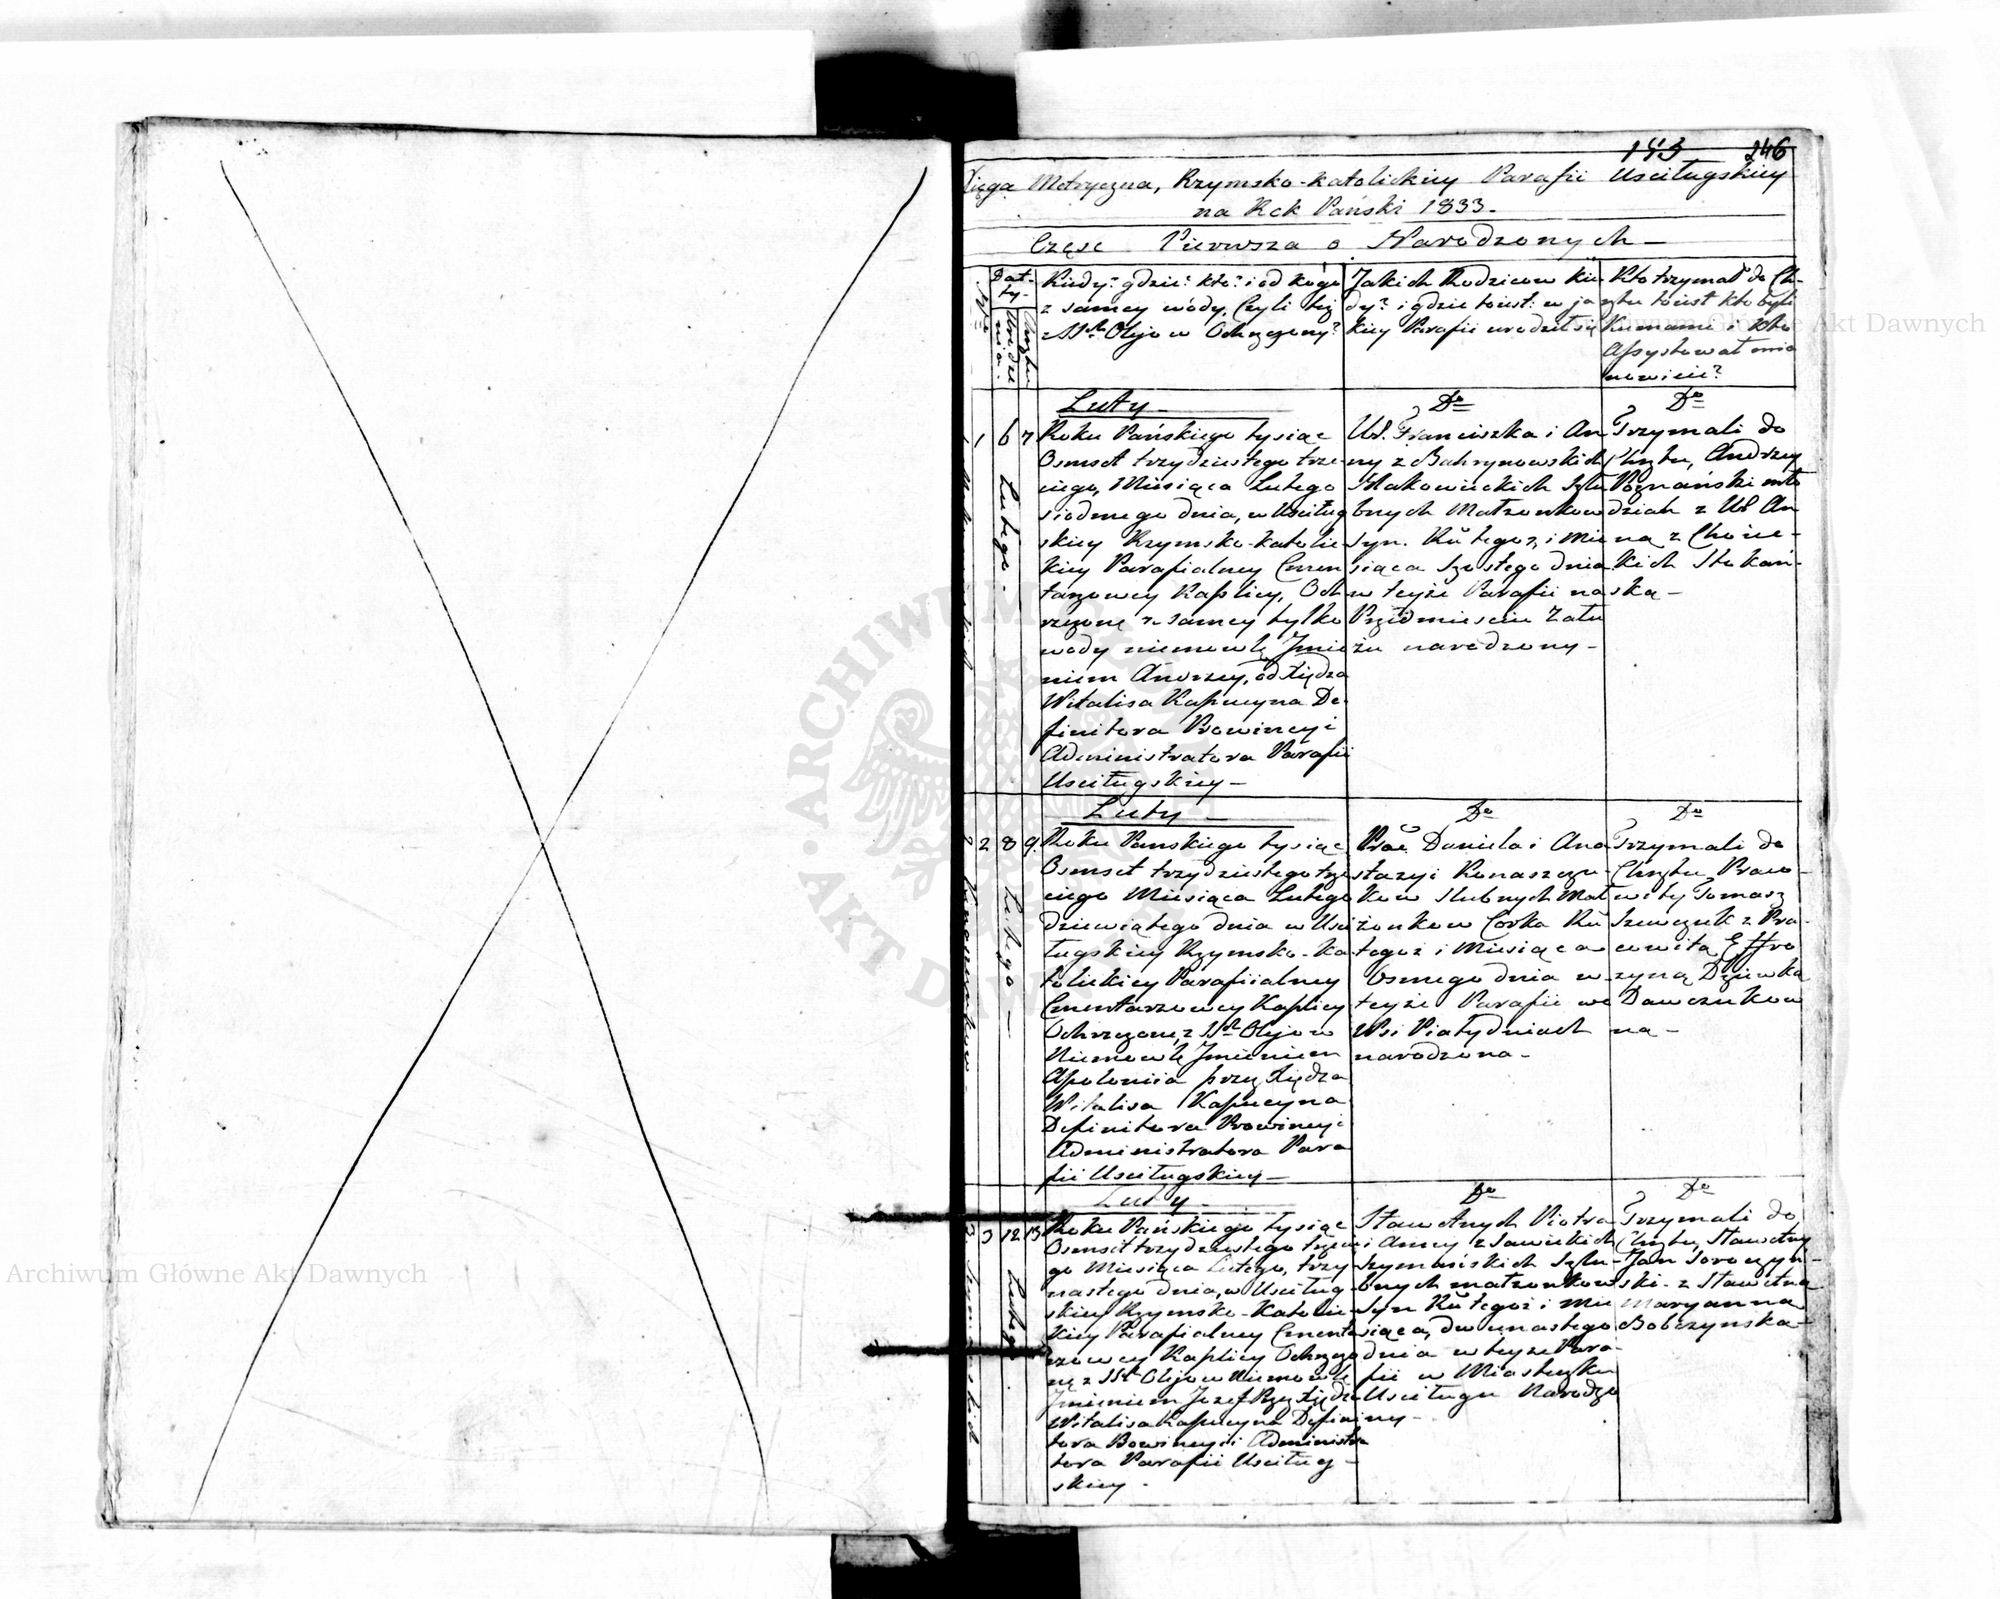 143 246
Księga Metryczna, Rzymsko-Katolickiey Parafii Uściługskiey
na Rok Pański 1833.
Część Pierwsza o Narodzonych
Daty.
Urodze
nia.
Chrztu
Kiedy? gdzie? kto? i od kogo
z samey wody, Czyli też
z SS. Olejow Ochrzczony?
Jakich Rodzicow kie-
dy? i gdzie to iest: w ja
kiey Parafii urodził się
Kto trzymał do Ch-
rztu to iest kto byli
Kumami i kto
assystował mia
nowicie?
1 6 7
Lutego.
Luty
Roku Pańskiego tysiąc
Osmset trzydziestego trze
ciego, Miesiąca Lutego
siodmego dnia, w Uściług
skiey Rzymsko-Katolic
kiey Parafialney Cmen
tarzowey Kaplicy, Och
rzczone z samey tylko
wody niemowlę Jmie
niem Andrzey, od Xiędza
Witalisa Kapucyna De
finitora Prowincyi
Administratora Parafii
Uściługskiey
Do
Ur. Franciszka i An
ny z
Makowieckich Szlu
bnych Małżonkow
syn. Ru tegoż, i Mie
siąca szostego dnia
w teyże Parafii na
Przedmieściu Zału
żu narodzony
Do
Trzymali do
Chrztu, Andrzey
Poznański mło
dzian z Ur. An
ną z Choie-
ckich Stokań-
ską
2 8 9
Lutego
Luty
Roku Panskiego tysiąc
Osmset trzydziestego trze
ciego Miesiąca Lutego
dziewiątego dnia w Uści
ługskiey Rzymsko-Ka
tolickiey Parafiialney
Cmentarzowey Kaplicy
Ochrzczone, z SS. Olejow
Niemowlę Jmieniem
Apoloniia przez Xiędza
Witalisa Kapucyna
Definitora Prowincyi
Administratora Para
fii Uściługskiey
Do
Prac. Daniela i Ana
stazyi Konaszczu-
kow slubnych Mał
żonkow Corka Ru
tegoż i Miesiąca
Osmego dnia w
teyże Parafii we
Wsi Piatydniach
narodzona
Do
Trzymali do
Chrztu, Praco-
wity Tomasz
Szewczuk z Pra-
cowitą Effro
zyną Dziewką
Dawczukow
na
3 12 13
Lutego
Luty
Roku Pańskiego tysiąc
Osmset trzydziestego trzecie
go Miesiąca Lutego, trzy
nastego dnia, w Uściług
skiey Rzymsko-Katolic
kiey Parafialney Cmenta
rzowey Kaplicy Ochrzczo
ne z SS. Olejow Niemowlę
Jmieniem Jozef Przez Xiędza
Witalisa Kapucyna Defini
tora Prowincyi i Administra
tora Parafii Uściług
skiey
Do
Sławetnych Piotra
i Anny z Sawickich
Szymańskich Szlu-
bnych małżonkow
syn Ru tegoż i Mie
siąca, dwunastego
dnia w teyże Para-
fii w Miasteczku
Uściługu Narodzo
ny
Do
Trzymali do
Chrztu, Sławetny
Jan Soroczyń-
ski z Sławetną
Maryanną
Bobczynską
Archiwum Główne Akt Dawnych
Archiwum Główne Akt Dawnych
ARCHIWUM GŁÓWNE AKT DAWNYCH